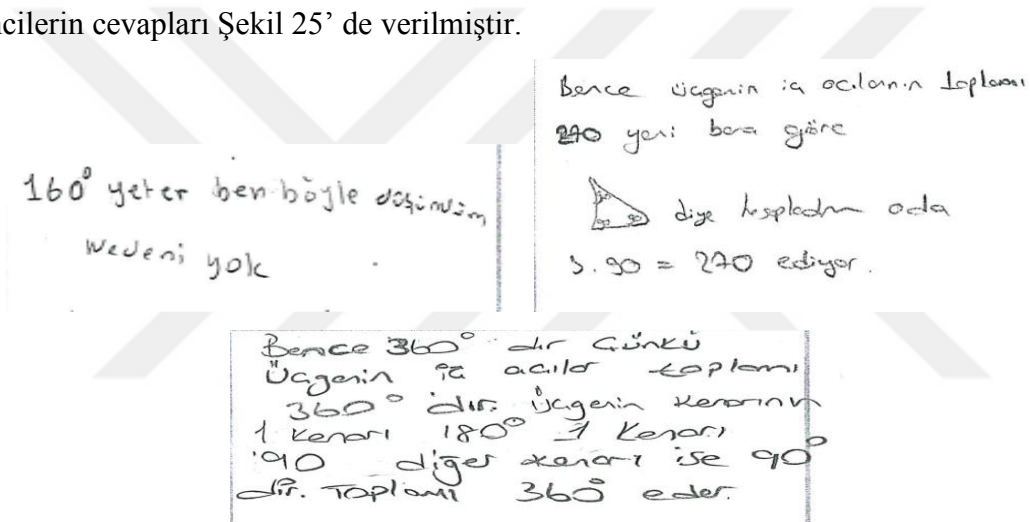 ncilerin cevapları Şekil 25’ de verilmiştir.
160° yeter ben böyle düşündüm
Nedeni yok
Bence üçgenin iç açılarının toplamı
270 yani bana göre
90 90 diye hesapladım oda
3.90 = 270 ediyor.
Bence 360° dir Çünkü
Üçgenin iç açılar toplamı
360° dir. Üçgenin kenarının
1 kenarı 180° 1 kenarı
90 diğer kenarı ise 90°
dir. Toplamı 360° eder.